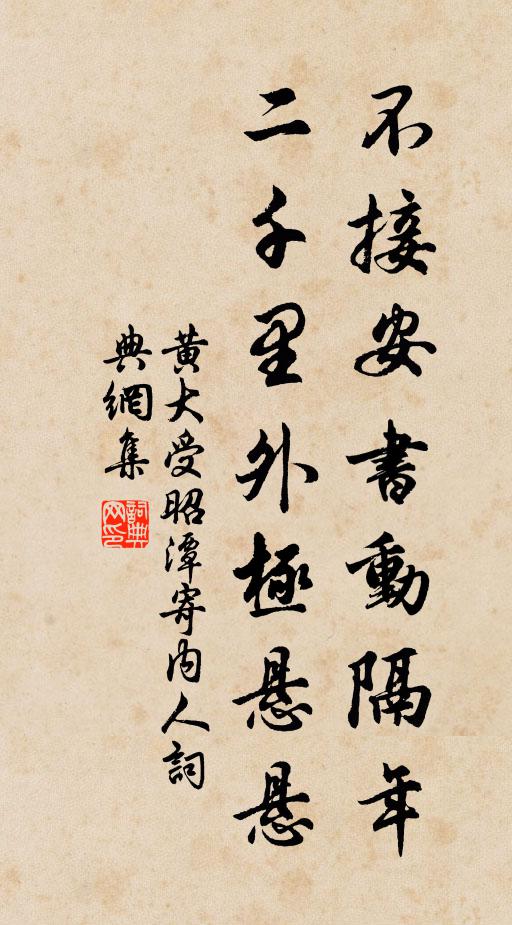 不接安書動隔年
二千里外極悬悬
黄大受昭潭寄内人詞
典網集
詞典
网印